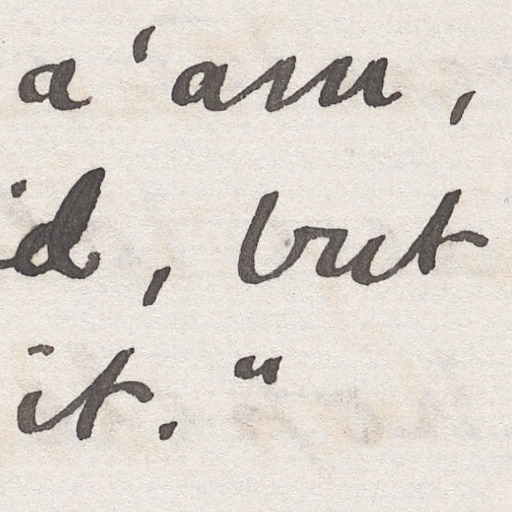 a'am,
'd, but
it."